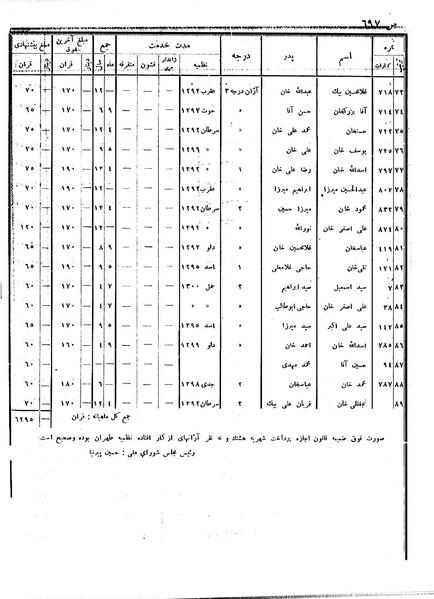 ص ۶۹۷
نمره کابینه اسم پدر درجه مدت خدمت جمع مبلغ آخرین حقوق مبلغ پیشنهادی
نظمیه ژاندارمری قشون متفرقه ماه سال قران دینار قران دینار
۷۲ ۷۱۸ غلامحسین بیک عبدالله خان آژان درجه ۳ عقرب ۱۲۹۲ — — — — ۱۲ ۱۷۰ — ۷۰
۷۴ ۷۱۴ آقا بزرگخان حسن آقا » حوت ۱۲۹۷ — — ۹ ۶ ۱۷۰ — ۶۵
۷۵ ۷۲۲ حسنخان محمد علی خان » سرطان ۱۲۹۲ — — ۴ ۱۲ ۱۷۰ — ۷۵
۷۶ ۷۲۵ یوسف خان علی خان » » ۱۲۹۶ — — ۵ ۹ ۱۷۰ — ۷۵
۷۷ ۷۹۷ اسدالله خان رضا علی خان ۱ » ۱۲۹۲ — — ۴ ۱۲ ۱۹۰ — ۷۵
۷۸ ۸۰۲ عبدالحسین میرزا ابراهیم میرزا » عقرب ۱۲۹۲ — — — ۱۲ ۱۹۰ — ۷۰
۷۹ ۸۳۲ محمود خان میرزا حسین ۲ سرطان ۱۲۹۲ — — ۴ ۱۲ ۱۷۰ — ۷۰
۸۰ ۸۷۴ علی اصغر خان نورالله » » ۱۲۹۲ — — — ۱۲ ۱۷۰ — ۱۲۰
۸۱ ۴۱۹ عباسخان غلامحسین خان » دلو ۱۲۹۲ — — ۹ ۸ ۱۷۰ — ۶۵
۸۲ ۱۷۱ تقی خان حاجی غلامعلی ۱ اسد ۱۲۹۵ — — ۵ ۹ ۱۹۰ — ۶۵
۸۳ ۷ سید اسمعیل سید ابراهیم ۲ حمل ۱۳۰۰ — — ۷ ۴ ۱۷۰ — ۶۰
۸۴ ۳۸ علی اصغر خان حاجی ابوطالب » » » — — » » ۱۷۰ — ۶۰
۸۵ ۱۴۷ سید علی اکبر سید میرزا » اسد ۱۲۹۵ — — ۵ ۹ ۱۷۰ — ۶۵
۸۶ ۷۸۵ اسدالله خان احمد خان » دلو ۱۲۹۹ — — ۹ ۴ ۱۶۰ — ۶۰
۸۷ ۹۴ حسن آقا محمد مهدی ۶۰
۸۸ ۷۸۷ محمد خان عباسخان ۲ جدی ۱۲۹۸ — — — ۶ ۱۸۰ — ۶۰
۸۹ نجفقلی خان قربان علی بیک ۳ سرطان ۱۲۹۲ — — ۴ ۱۲ ۱۷۰ — ۷۰
جمع کل ماهیانه : قران ۶۲۹۵
صورت فوق ضمیمه قانون اجازه پرداخت شهریه هشتاد و نه نفر آژانهای از کار افتاده نظمیه طهران بوده و صحیح است
رئیس مجلس شورای ملی : حسین پیرنیا